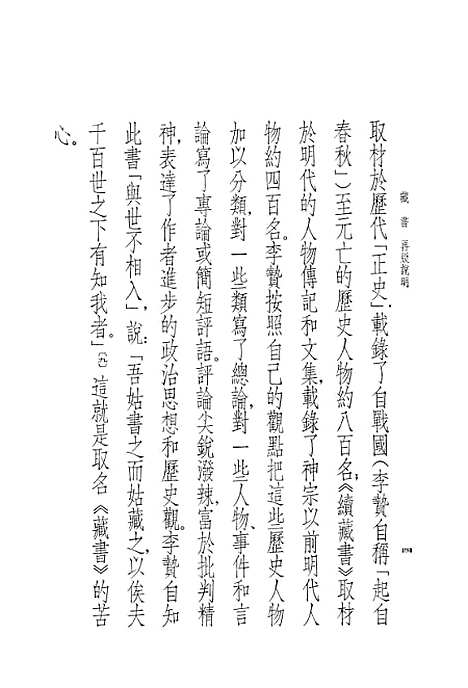 藏書 再版說明
取材於歷代「正史」，載錄了自戰國（李贄自稱「起自
春秋」）至元亡的歷史人物約八百名；《續藏書》取材
於明代的人物傳記和文集，載錄了神宗以前明代人
物約四百名。李贄按照自己的觀點把這些歷史人物
加以分類，對一些類寫了總論，對一些人物、事件和言
論寫了專論或簡短評語。評論尖銳潑辣，富於批判精
神，表達了作者進步的政治思想和歷史觀。李贄自知
此書「與世不相入」，說：「吾姑書之而姑藏之，以俟夫
千百世之下有知我者。」〔九〕這就是取名《藏書》的苦
心。